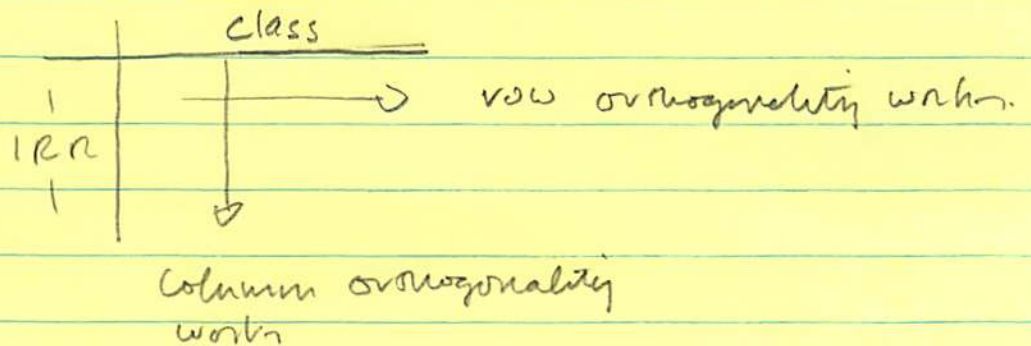 class
row orthogonality works.
IRR
Column orthogonality
works